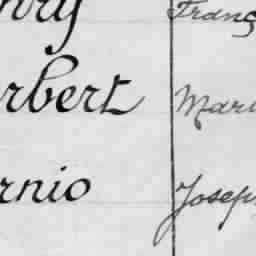 nry Franç
rbert Mari
rnio Josep